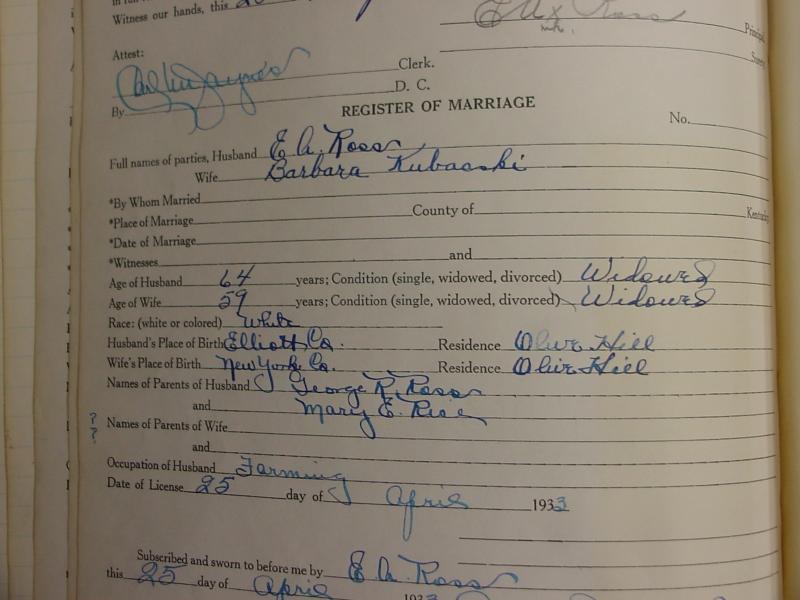 Witness our hands, this
Ross
Attest:
Clerk.
By D. C.
REGISTER OF MARRIAGE
No.
Full names of parties, Husband E. A. Ross
Wife Barbara Kubacski
*By Whom Married
*Place of Marriage County of Kentucky
*Date of Marriage
*Witnesses and
Age of Husband 64 years; Condition (single, widowed, divorced) Widowed
Age of Wife 59 years; Condition (single, widowed, divorced) Widowed
Race: (white or colored) White
Husband's Place of Birth Elliott Co. Residence Olive Hill
Wife's Place of Birth New York Co. Residence Olive Hill
Names of Parents of Husband George R. Ross
and Mary E. Rice
? Names of Parents of Wife
?
and
Occupation of Husband Farming
Date of License 25 day of April 1933
Subscribed and sworn to before me by E. A. Ross
this 25 day of April 1933